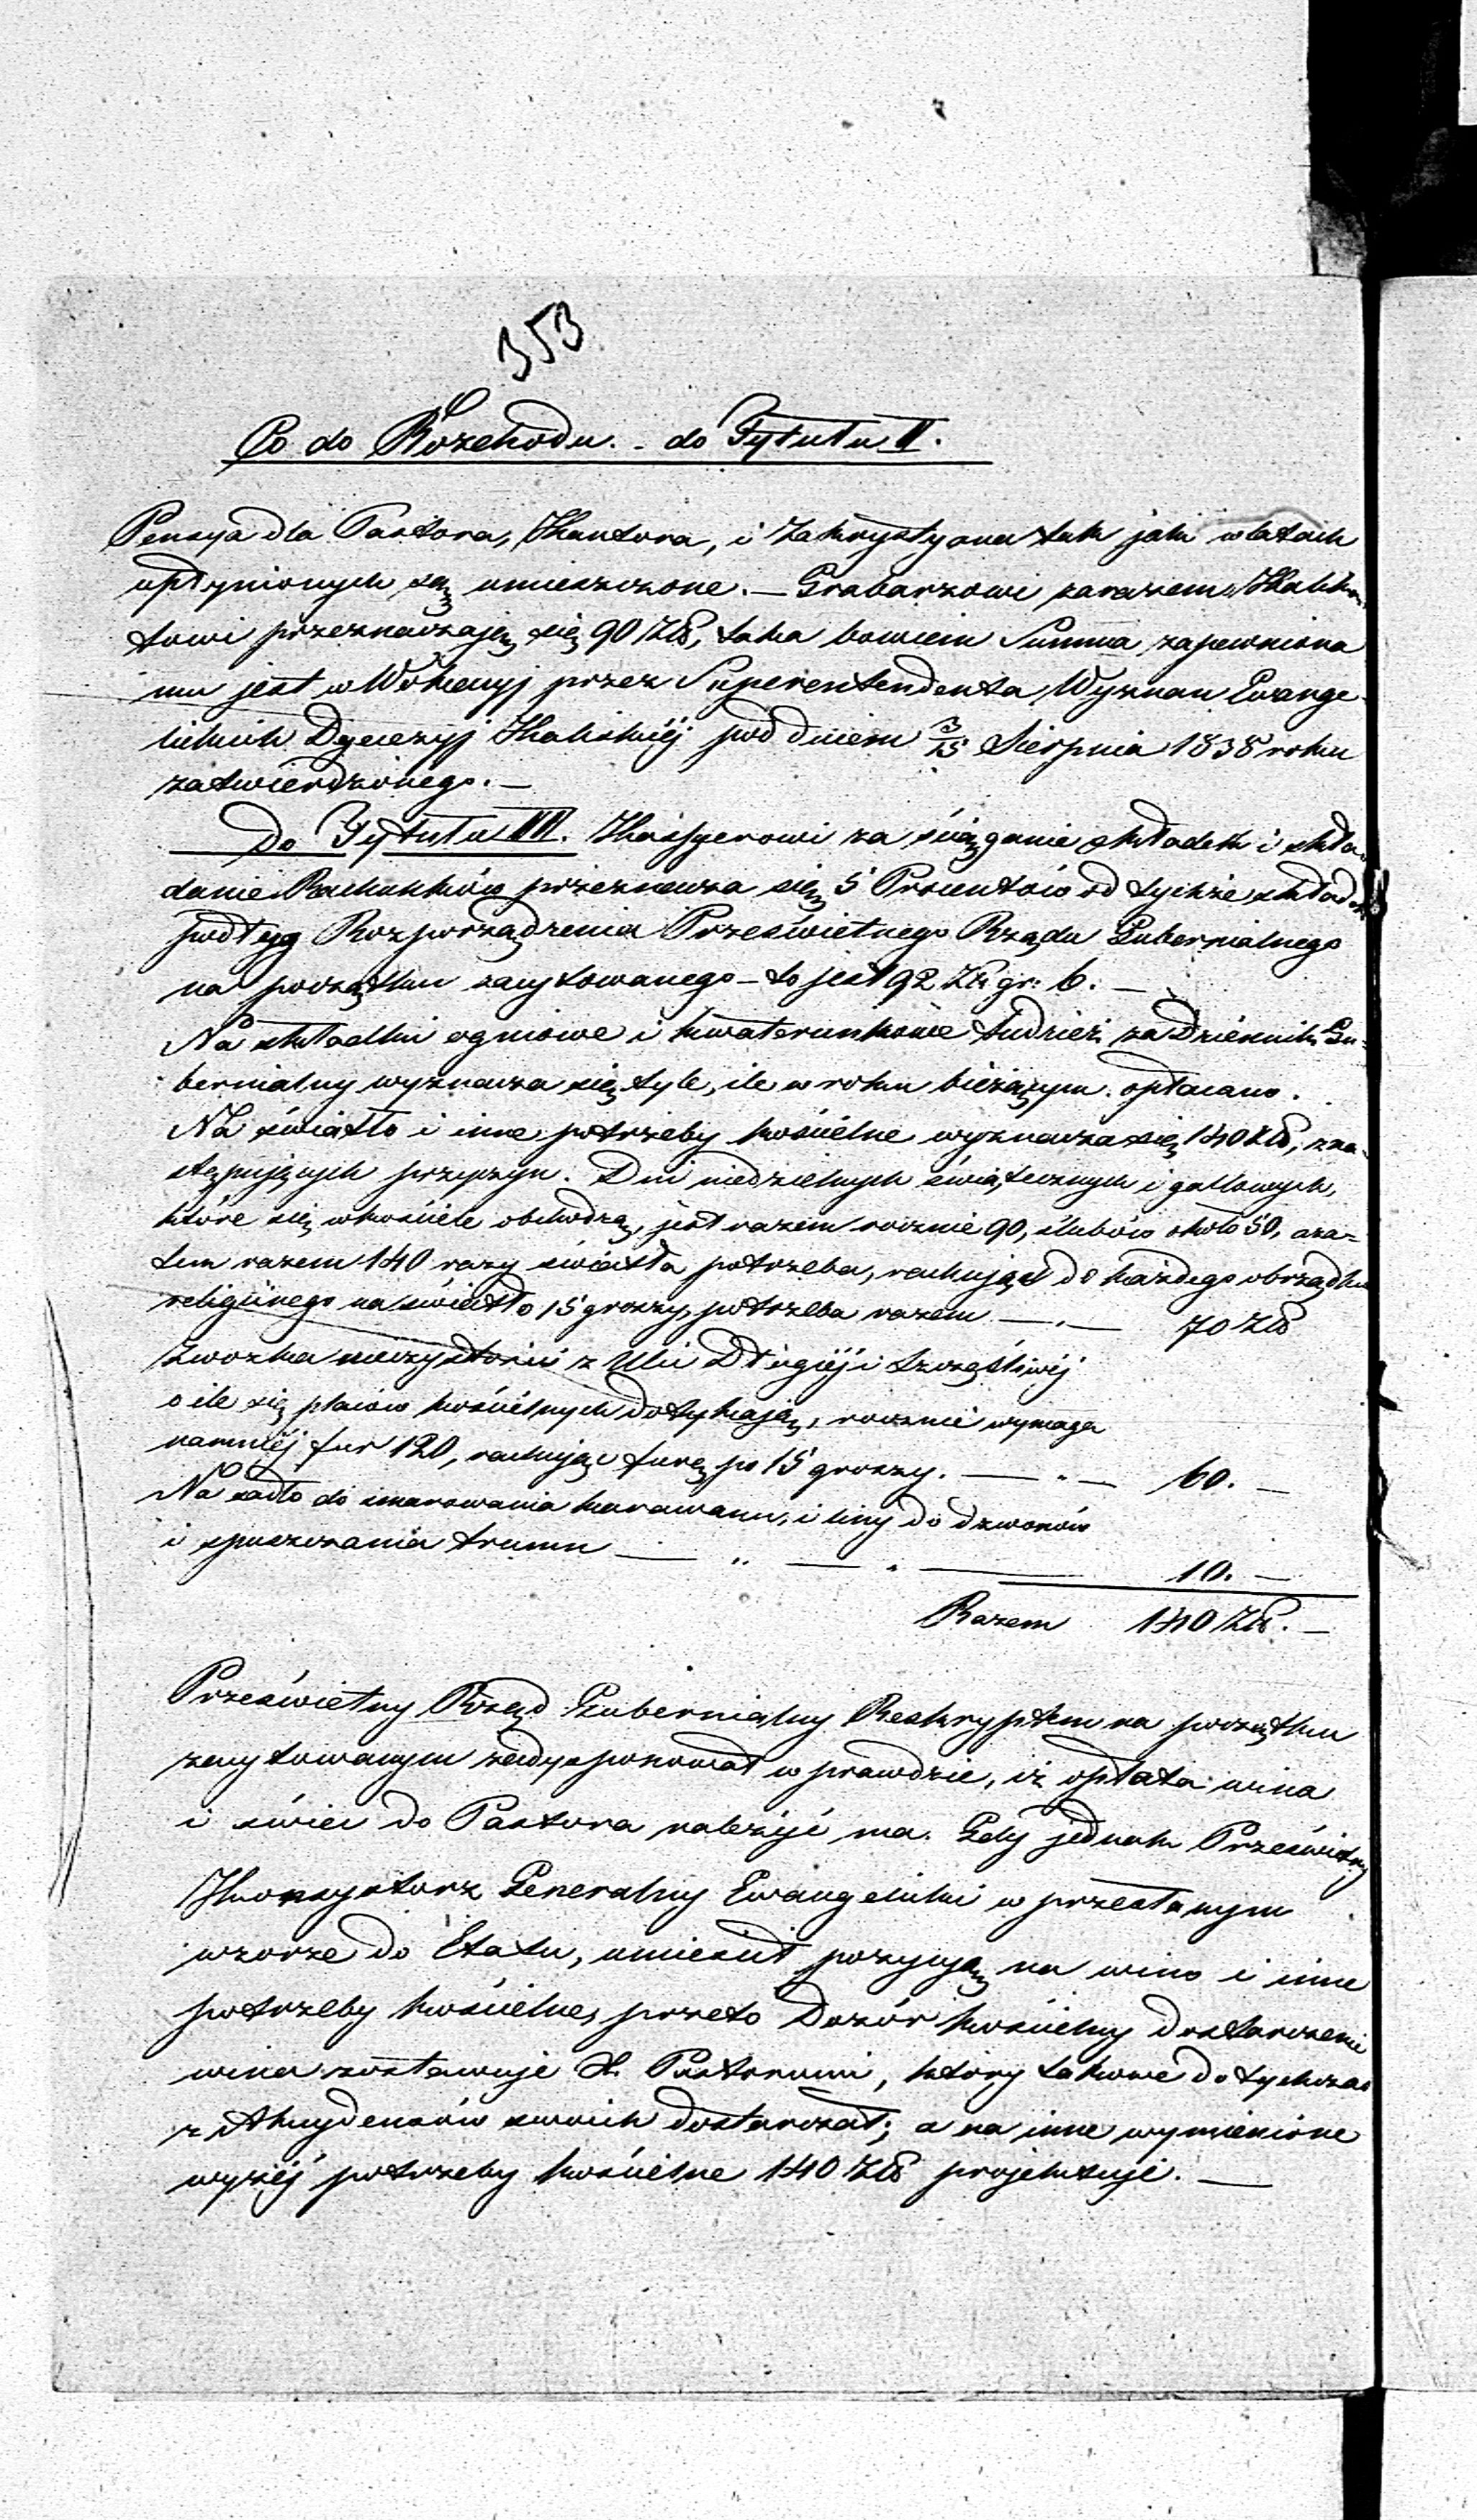 353
Co do Rozchodu. - do Tytułu II.
Pensya dla Pastora, Kantora, i Zakrystyana tak jak w latach
upłynionych są umieszczone. — Grabarzowi zarazem Kalikan-
towi przeznaczają się 90 Złt, taka bowiem Summa zapewniona
mu jest w Wokacyj przez Superentendenta Wyznan Ewange-
lickich Dyecezyj Kaliskiéj pod dniem 3/15 Sierpnia 1838 roku
zatwierdzonego. —
Do Tytułu III. Kassyerowi za ściąganie składek i skła-
danie Rachunków przeznacza się 5 Procentów od tychże składek
podług Rozporządzenia Prześwietnego Rządu Gubernialnego
na początku zacytowanego – to jest 92 Złt gr: 6. —
Na składki ogniowe i kwaterunkowe tudzież za Dziennik Gu-
bernialny wyznacza się tyle, ile w roku bieżącym opłacano.
Na światło i inne potrzeby kościelne wyznacza się 140 Złt, z na-
stępujących przyczyn. Dni niedzielnych świątecznych i gallowych,
które się w kościele obchodzą, jest razem rocznie 90, ślubów około 50, aza-
tem razem 140 razy światła potrzeba, rachując do każdego obrządku
religijnego na światło 15 groszy, potrzeba razem — . — 70 Złt
Zwozka nieczystości z Ulic Długiéj i Szczęśliwéj
o ile się placów kościelnych dotykają, rocznie wymaga
namniéj fur 120, rachując furę po 15 groszy. — " — 60. —
Na sadło do smarowania karawanu, i liny do dzwonów
i spuszczania trumn — " — " — 10. —
Razem 140 Złt. —
Prześwietny Rząd Gubernialny Reskryptem na początku
zacytowanym zadysponował w prawdzie, iż opłata wina
i świec do Pastora należyć ma. Gdy jednak Prześwietny
Konsystorz Generalny Ewangelicki w przesłanym
wzorze do Etatu, umieścił pozycyą na wino i inne
potrzeby kościelne, przeto Dozór kościelny dostarczenie
wina zostawuje X. Pastorowi, który takowe dotychczas
z Akcydensów swoich dostarczał; a na inne wymienione
wyżéj potrzeby kościelne 140 Złt projektuje. —